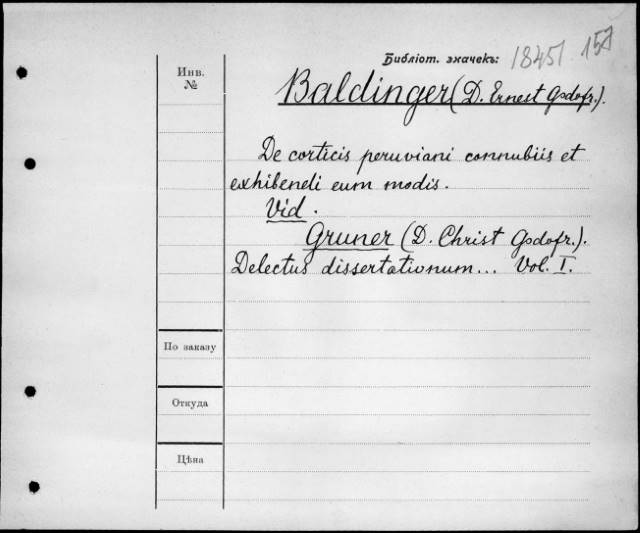 Библіот. значекъ: 18451 157
Инв.
№
Baldinger (D. Ernest Gsdofr.).
De corticis peruviani connubiis et
exhibendi eum modis.
Vid.
Gruner (D. Christ Gsdofr.).
Delectus dissertationum... Vol. I.
По заказу
Откуда
Цѣна